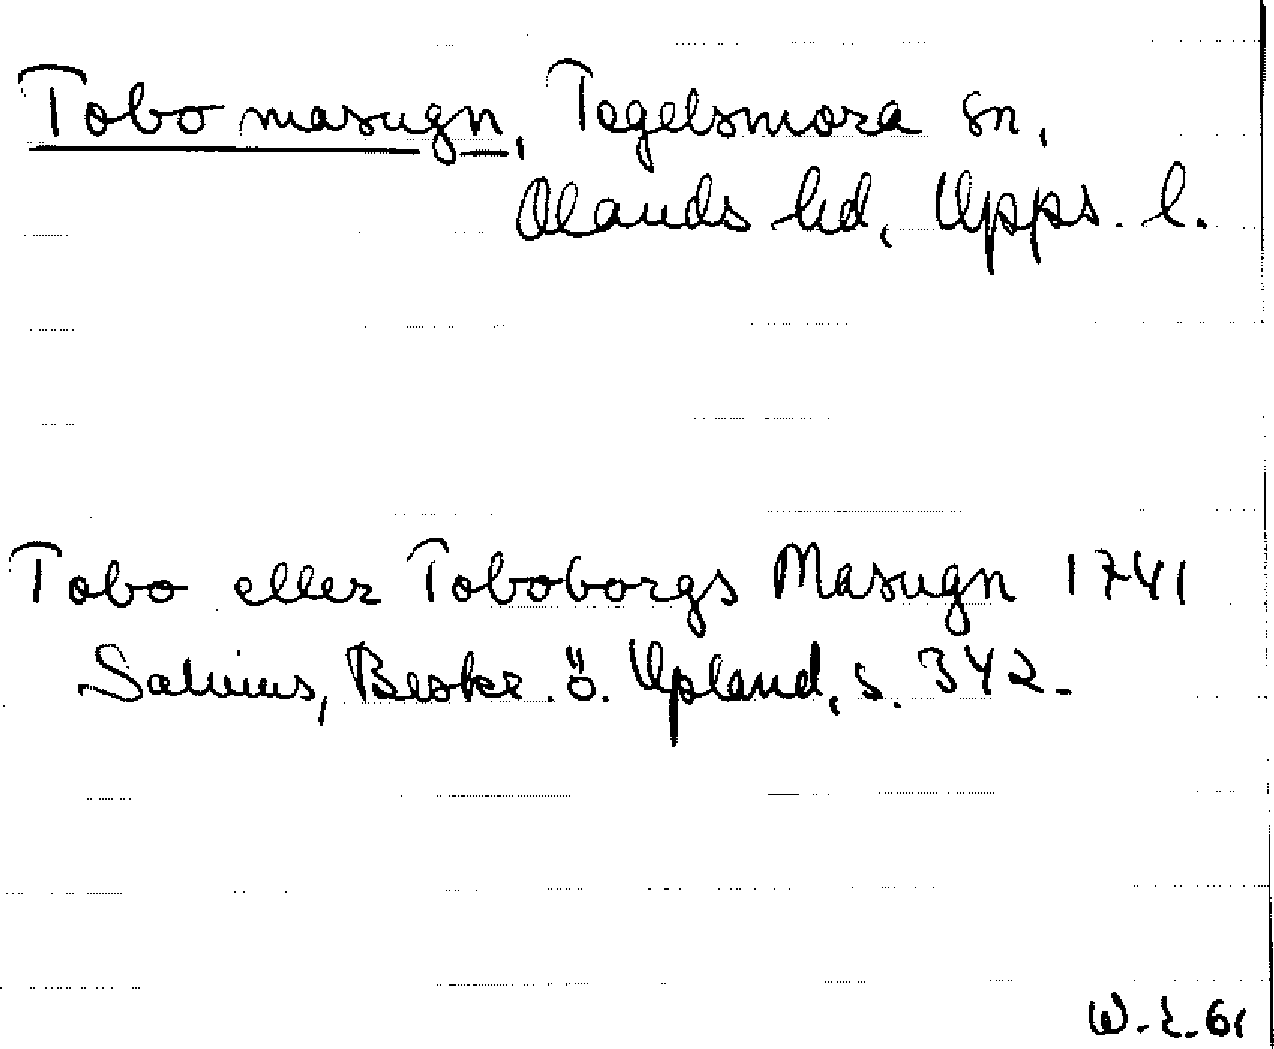 Tobo masugn, Tegelsmora sn,
Olands hd, Upps. l.
Tobo eller Toboborgs Masugn 1741
Salvius, Beskr. ö. Upland, s. 342.